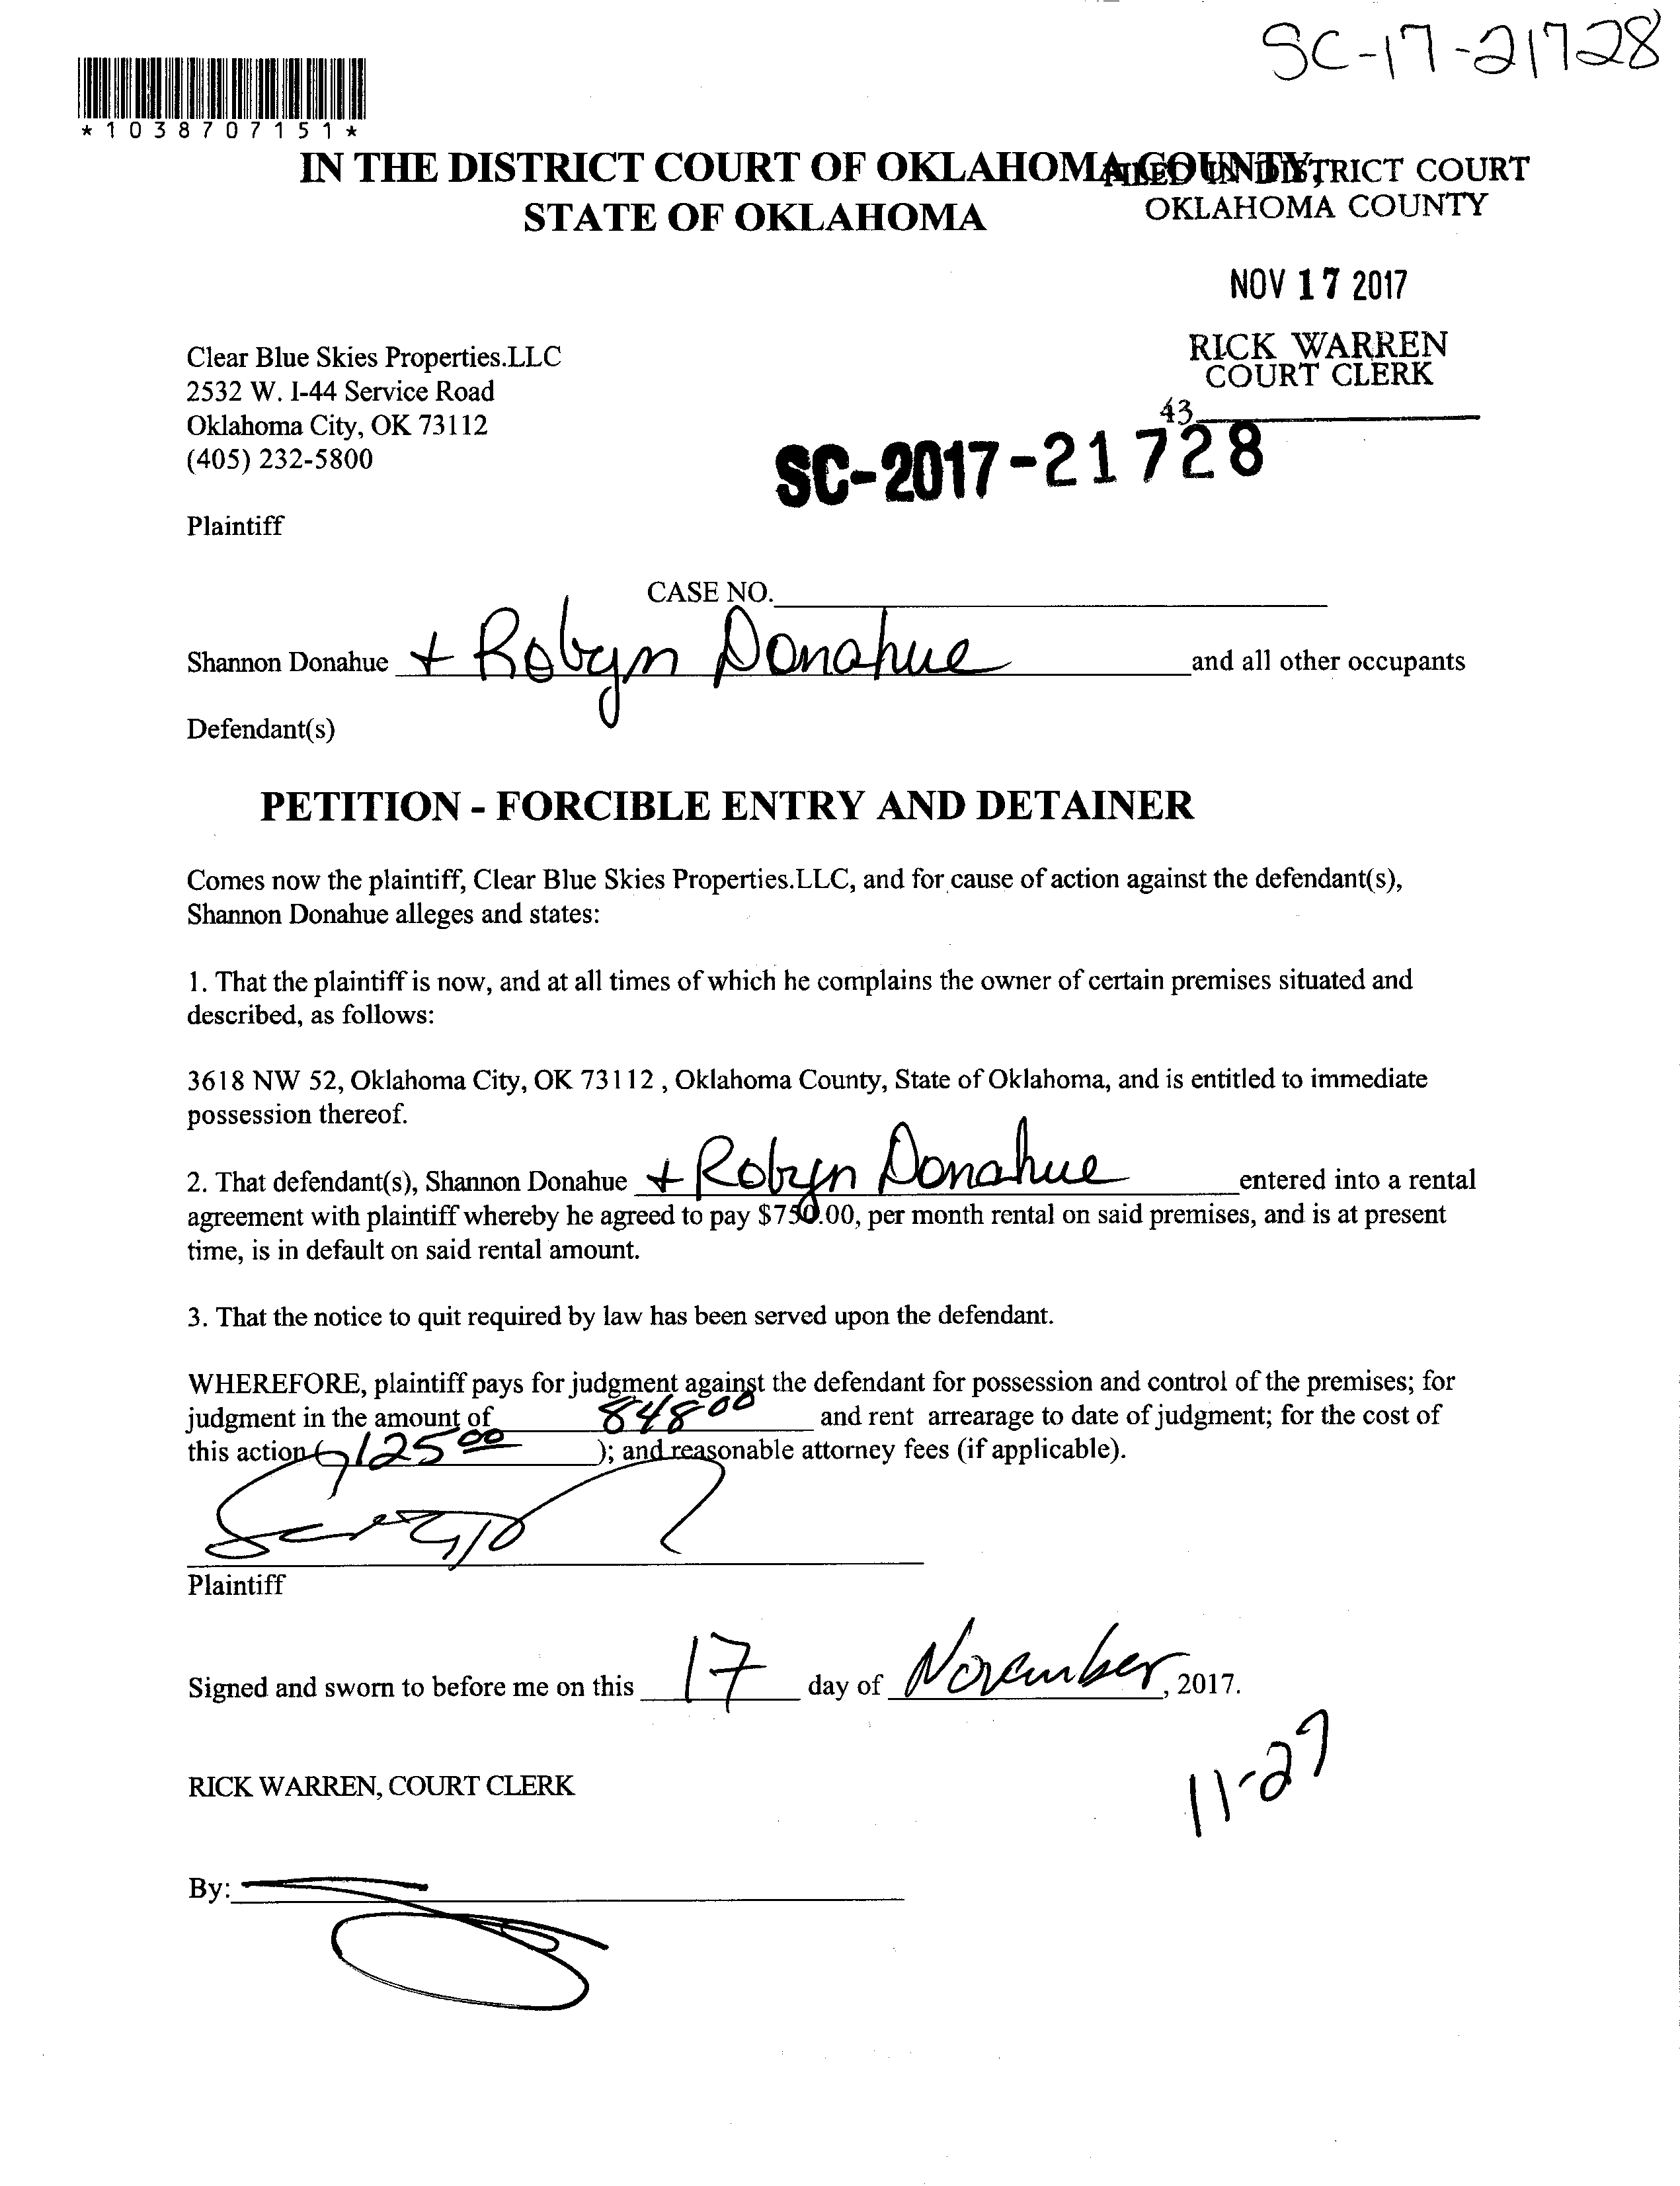 SC-17-21728
*1038707151*
IN THE DISTRICT COURT OF OKLAHOMA COUNTY,
FILED IN DISTRICT COURT
STATE OF OKLAHOMA
OKLAHOMA COUNTY
NOV 17 2017
RICK WARREN
COURT CLERK
43
Clear Blue Skies Properties.LLC
2532 W. I-44 Service Road
Oklahoma City, OK 73112
(405) 232-5800
SC-2017-21728
Plaintiff
CASE NO.
Shannon Donahue + Robyn Donahue and all other occupants
Defendant(s)
PETITION - FORCIBLE ENTRY AND DETAINER
Comes now the plaintiff, Clear Blue Skies Properties.LLC, and for cause of action against the defendant(s),
Shannon Donahue alleges and states:
1. That the plaintiff is now, and at all times of which he complains the owner of certain premises situated and
described, as follows:
3618 NW 52, Oklahoma City, OK 73112 , Oklahoma County, State of Oklahoma, and is entitled to immediate
possession thereof.
2. That defendant(s), Shannon Donahue + Robyn Donahue entered into a rental
agreement with plaintiff whereby he agreed to pay $750.00, per month rental on said premises, and is at present
time, is in default on said rental amount.
3. That the notice to quit required by law has been served upon the defendant.
WHEREFORE, plaintiff pays for judgment against the defendant for possession and control of the premises; for
judgment in the amount of 848 00 and rent arrearage to date of judgment; for the cost of
this action ( 125 00 ); and reasonable attorney fees (if applicable).
Plaintiff
Signed and sworn to before me on this 17 day of November, 2017.
11-27
RICK WARREN, COURT CLERK
By: